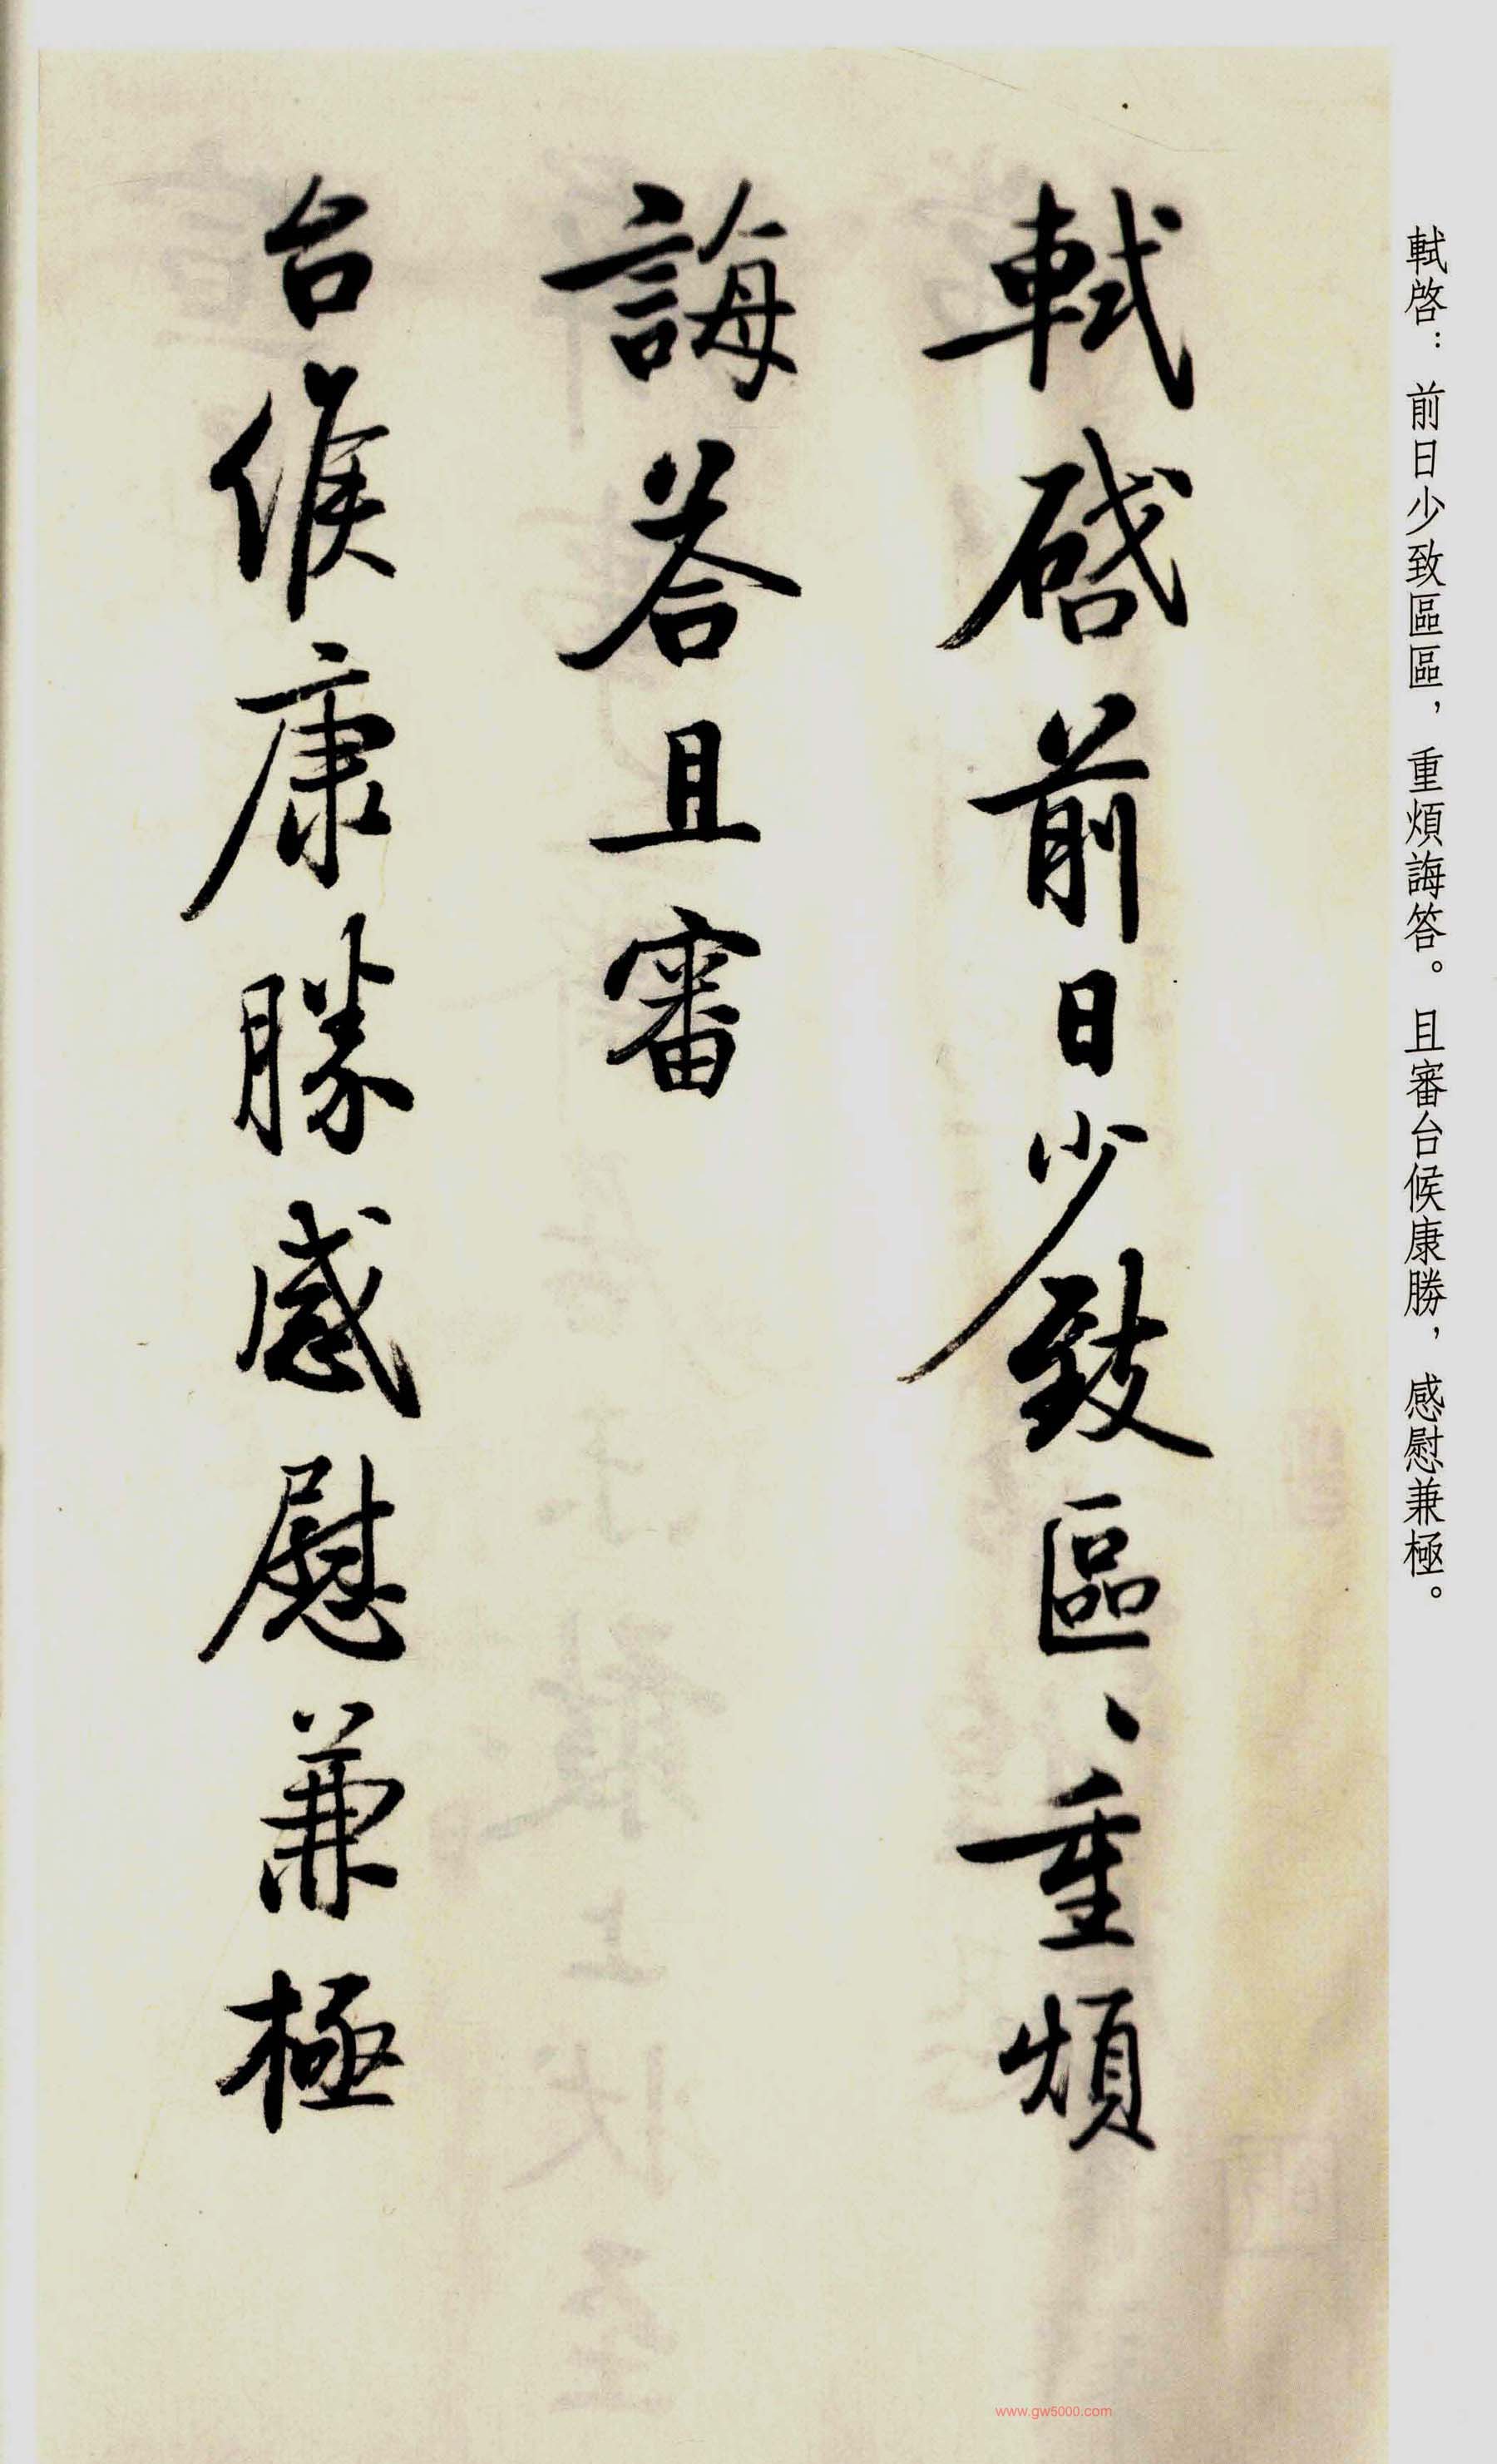 軾啓：前日少致區區，重煩誨答。且審台候康勝，感慰兼極。
軾啓前日少致區、重煩
誨荅且審
台候康勝感慰兼極
www.gw5000.com